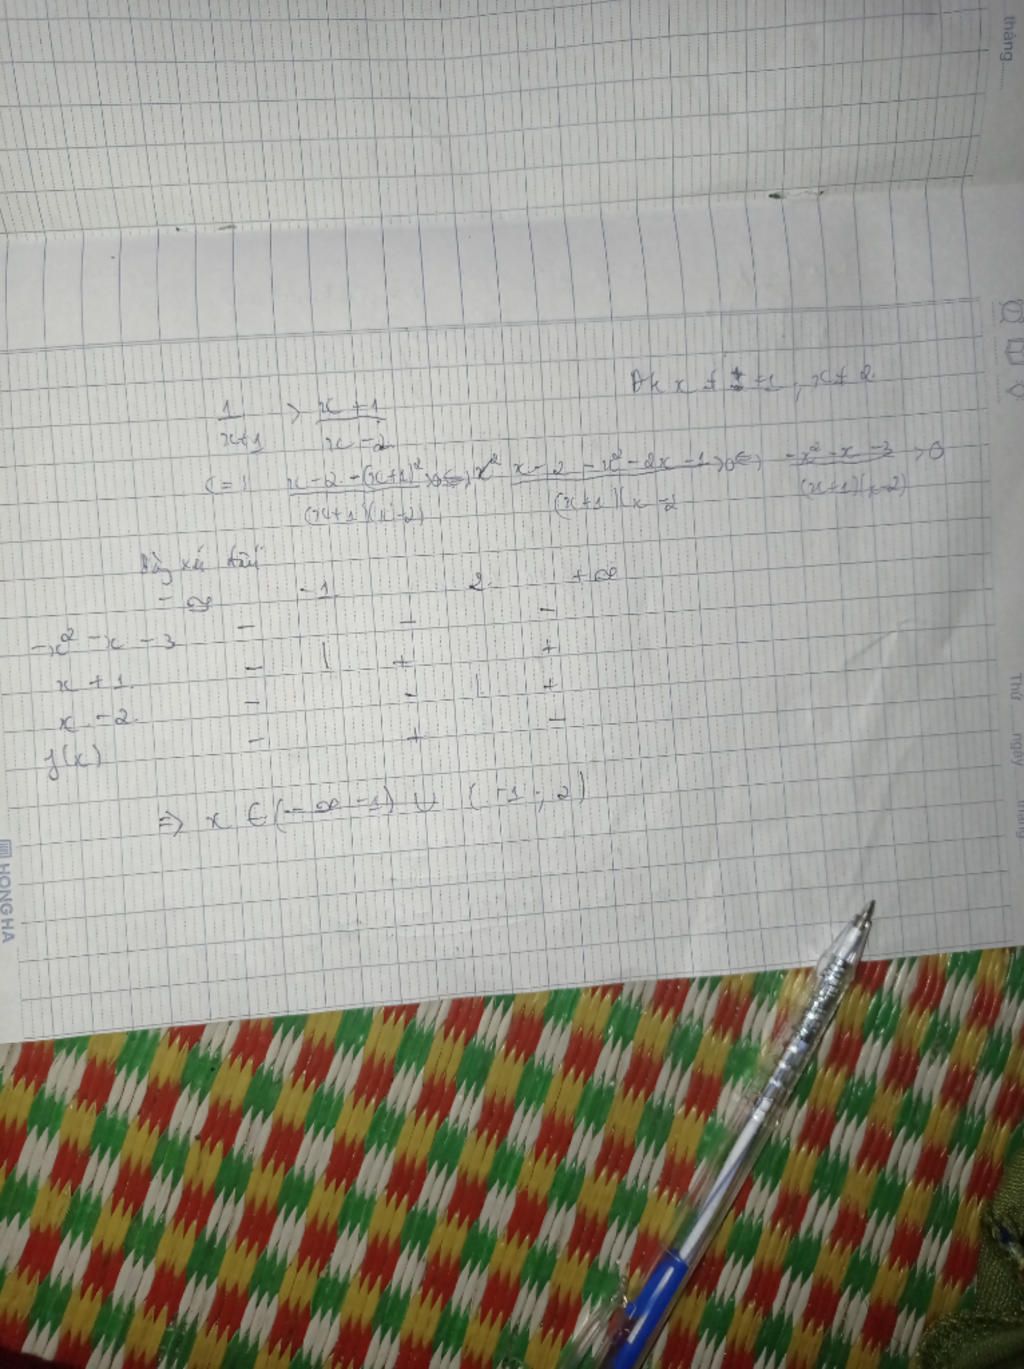 tháng
Đk x ≠ ± +1, x ≠ 2
1/(x+1) > (x+1)/(x-2)
(=) (x-2-(x+1)²)/((x+1)(x-2)) >0 (=) x² (x-2-x²-2x-1)/((x+1)(x-2 >0 (=) (-x²-x-3)/((x+1)(x-2)) >0
-∞ -1 2 +∞
-x²-x-3 - - -
x+1 - | + +
x-2 - - | +
f(x) - + -
=> x ∈ (-∞ -1) ∪ (-1; 2)
Thứ ngày tháng
HONG HA